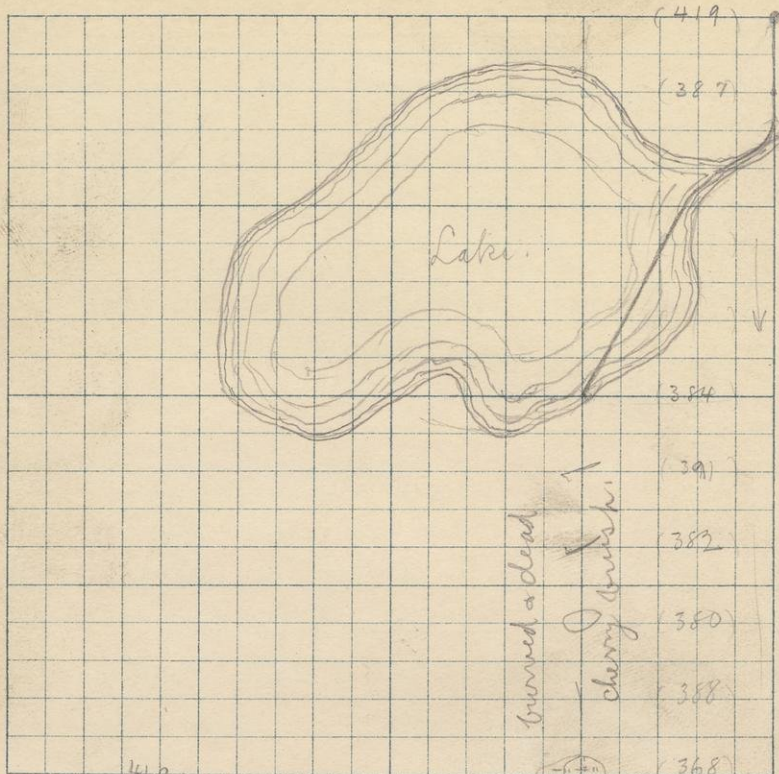 (419)
(387)
Lake.
(384)
(382)
(380)
(388)
(368
burned & dead
cherry brush.